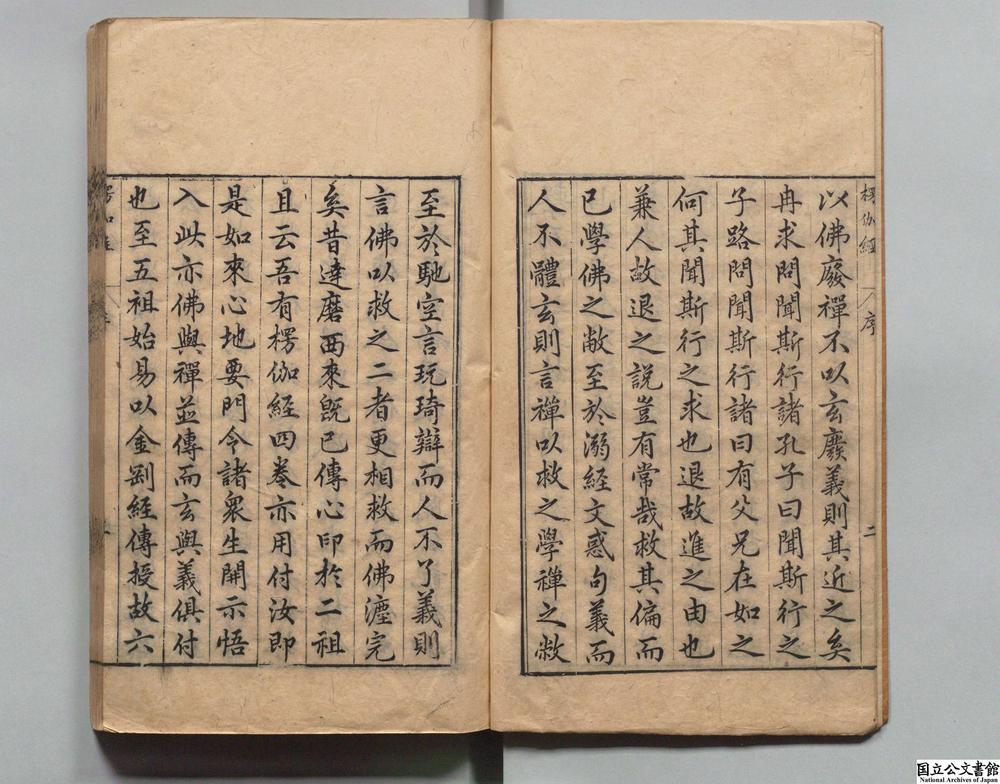 楞伽經
序
二
以佛廢禪不以玄廢義則其近之矣
冉求問聞斯行諸孔子曰聞斯行之
子路問聞斯行諸曰有父兄在如之
何其聞斯行之求也退故進之由也
兼人故退之說豈有常哉救其偏而
已學佛之敝至於溺經文惑句義而
人不體玄則言禪以救之學禪之敝
至於馳空言玩琦辯而人不了義則
言佛以救之二者更相救而佛灋完
矣昔達磨西來旣已傳心印於二祖
且云吾有楞伽經四卷亦用付汝即
是如來心地要門令諸衆生開示悟
入此亦佛與禪並傳而玄與義俱付
也至五祖始易以金剛經傳授故六
国立公文書館
National Archives of Japan